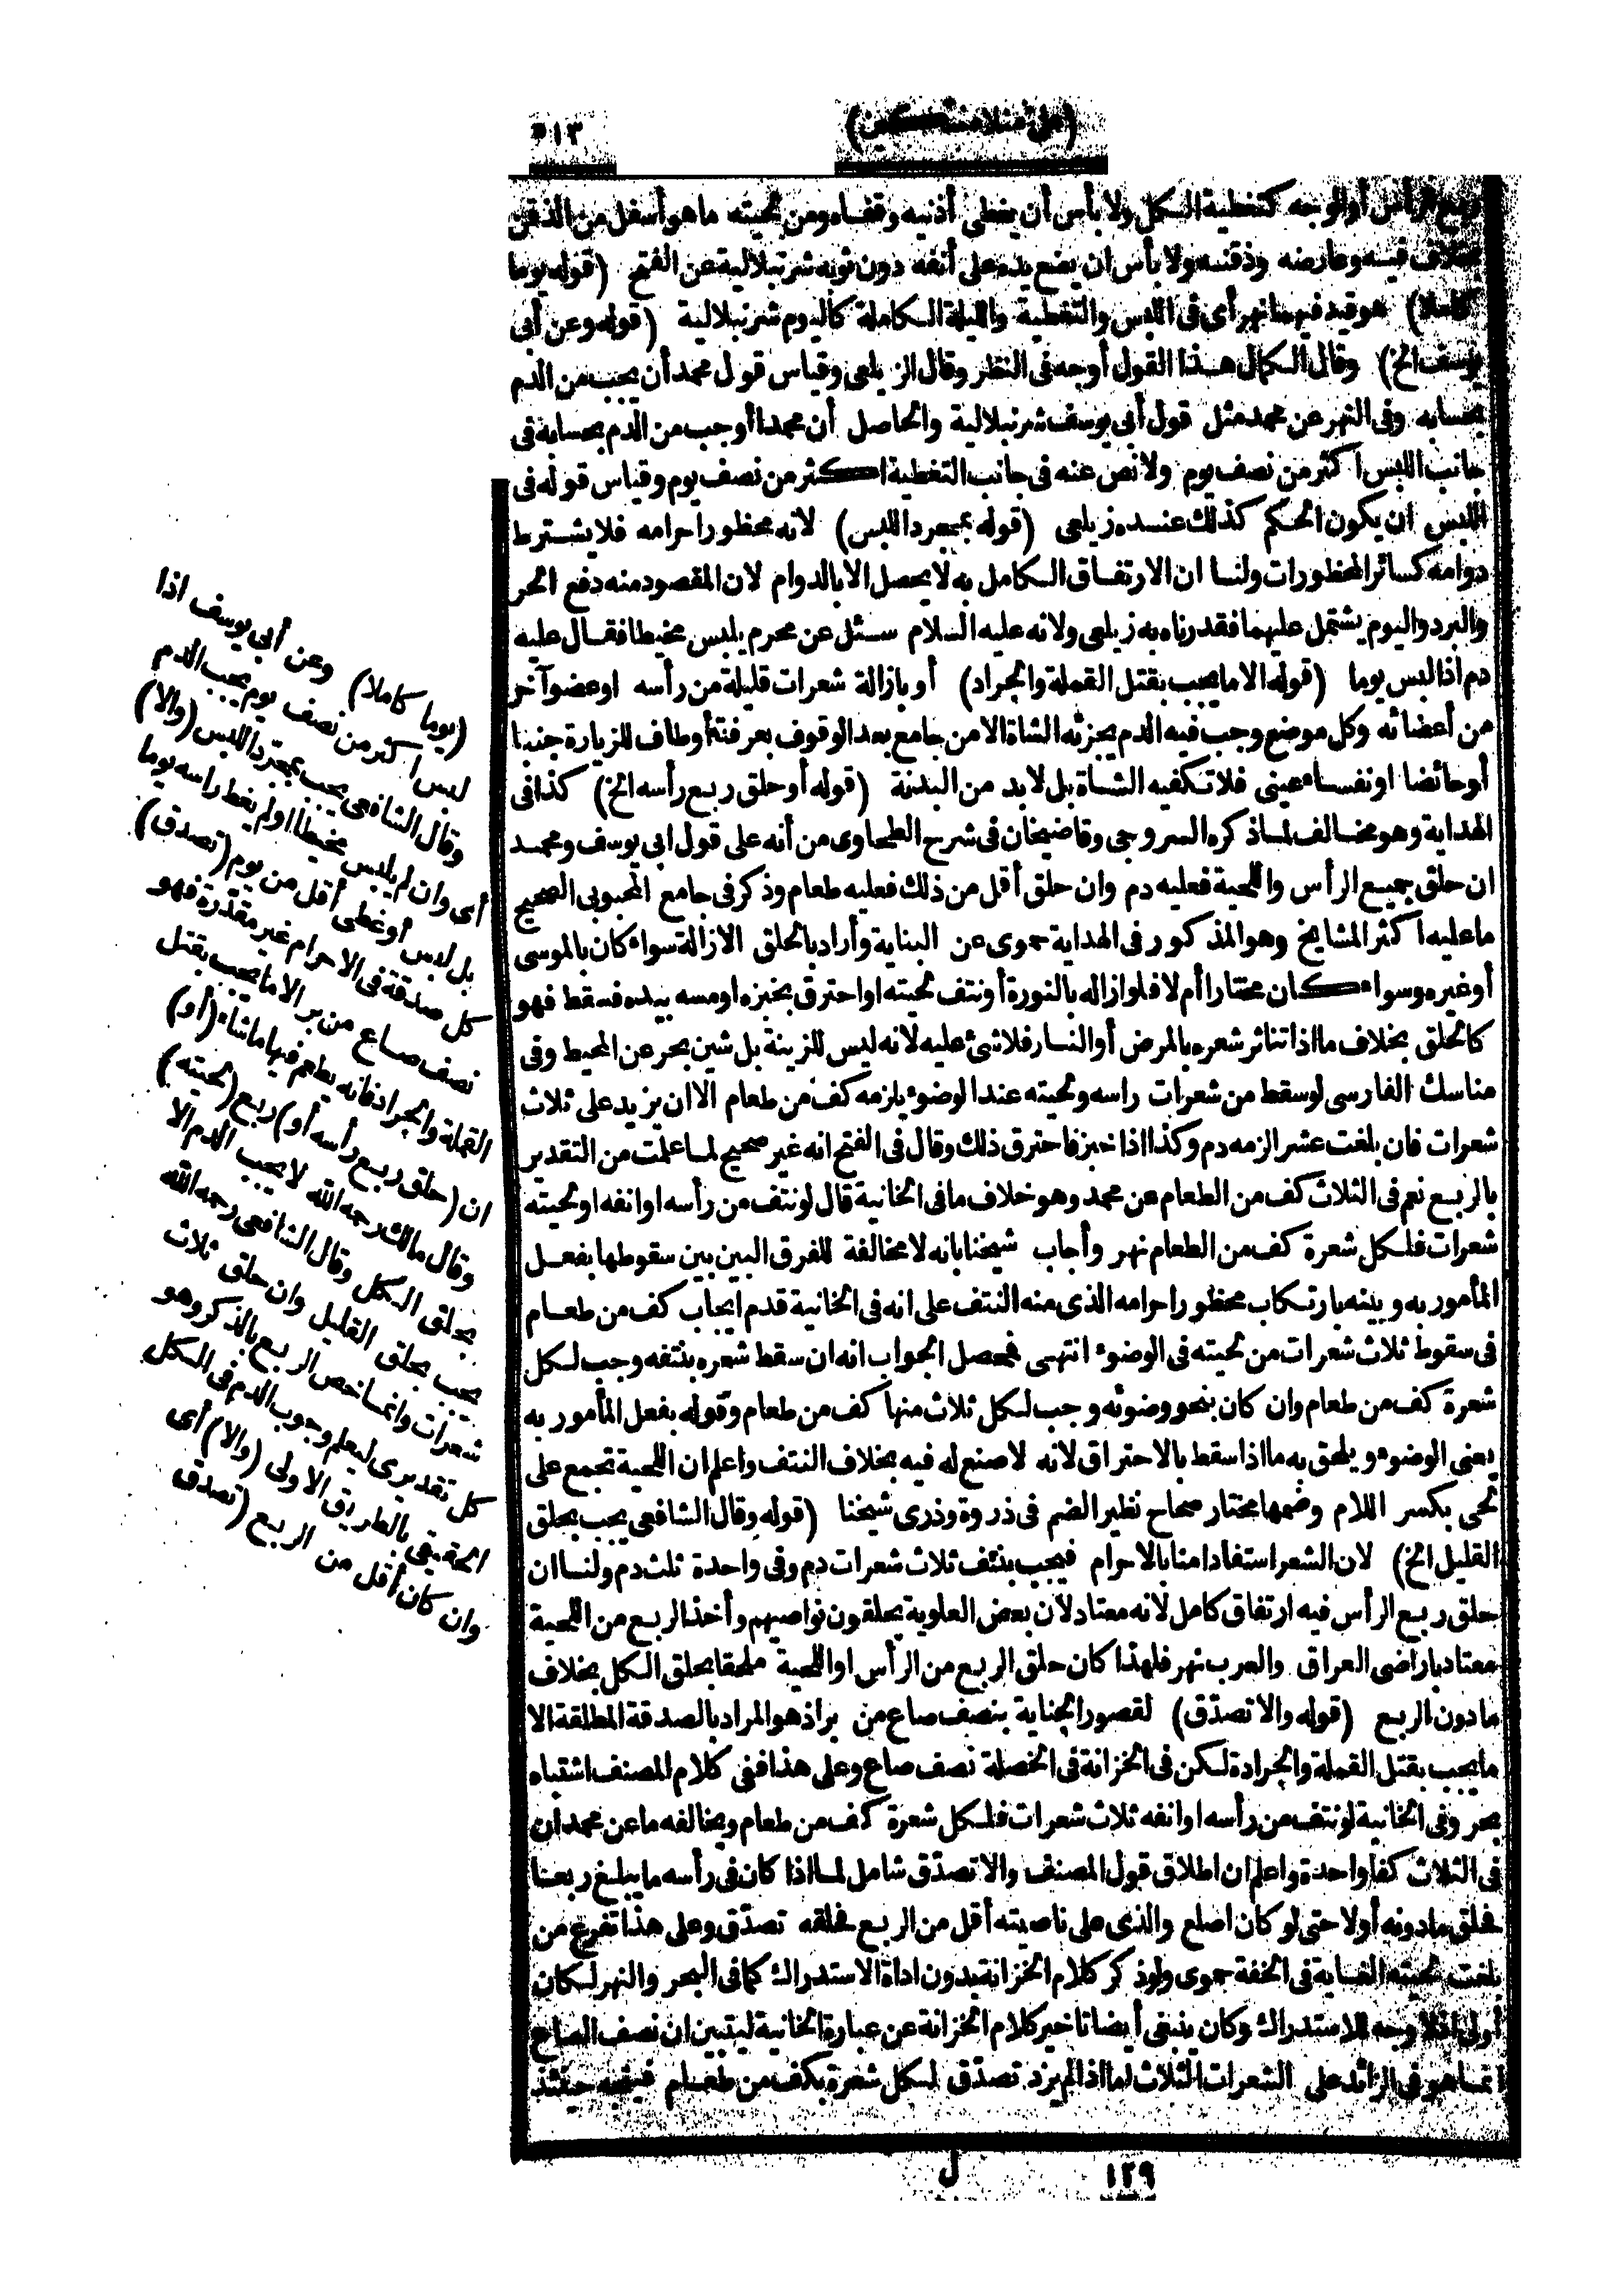 (على منلا مسكين)
٥١٣
ربع الرأس أو الوجه كتغطية الكل ولا بأس أن يغطى أذنيه وقفاه ومن لحيته ما هو أسفل من الذقن
بخلاف فيه وعارضه وذقنه ولا بأس ان يضع يده على أنفه دون ثوبه شرنبلالية عن الفتح (قوله يوما
كاملا) هو قيد فيهما نهر أى فى اللبس والتغطية والليلة الكاملة كاليوم شرنبلالية (قوله وعن أبى
يوسف الخ) وقال الكمال هذا القول أوجه فى النظر وقال الزيلعى وقياس قول محمد أن يجب من الدم
بحسابه وفى النهر عن محمد مثل قول أبى يوسف شرنبلالية والحاصل أن محمدا أوجب من الدم بحسابه فى
جانب اللبس اكثر من نصف يوم ولا نص عنه فى جانب التغطية اكثر من نصف يوم وقياس قوله فى
اللبس ان يكون الحكم كذلك عنده زيلعى (قوله بمجرد اللبس) لانه محظور احرامه فلا يشترط
دوامه كسائر المحظورات ولنا ان الارتفاق الكامل به لا يحصل الا بالدوام لان المقصود منه دفع الحر
والبرد واليوم يشتمل عليهما فقدرناه به زيلعى ولانه عليه السلام سئل عن محرم يلبس مخيطا فقال عليه
دم اذا لبس يوما (قوله الا ما يجب بقتل القملة والجراد) أو بازالة شعرات قليلة من رأسه او عضو آخر
من أعضائه وكل موضع وجب فيه الدم يجزئه الشاة الا من جامع بعد الوقوف بعرفة أو طاف للزيارة جنبا
أو حائضا او نفساء عينى فلا تكفيه الشاة بل لا بد من البدنة (قوله أو حلق ربع رأسه الخ) كذا فى
الهداية وهو مخالف لما ذكره السروجى وقاضيخان فى شرح الطحاوى من أنه على قول ابى يوسف ومحمد
ان حلق جميع الرأس واللحية فعليه دم وان حلق أقل من ذلك فعليه طعام وذكر فى جامع المحبوبى الصحيح
ما عليه اكثر المشايخ وهو المذكور فى الهداية حموى عن البناية وأراد بالحلق الازالة سواء كان بالموسى
أو غيره وسواء كان مختارا أم لا فلو ازاله بالنورة أو نتف لحيته او احترق بخبزه او مسه بيده فسقط فهو
كالحلق بخلاف ما اذا تناثر شعره بالمرض أو النار فلا شئ عليه لانه ليس للزينة بل شين بحر عن المحيط وفى
مناسك الفارسى لو سقط من شعرات راسه ولحيته عند الوضوء يلزمه كف من طعام الا ان يزيد على ثلاث
شعرات فان بلغت عشرا لزمه دم وكذا اذا خبز فاحترق ذلك وقال فى الفتح انه غير صحيح لما علمت من التقدير
بالربع نعم فى الثلاث كف من الطعام عن محمد وهو خلاف ما فى الخانية قال لو نتف من رأسه او انفه او لحيته
شعرات فلكل شعرة كف من الطعام نهر وأجاب شيخنا بانه لا مخالفة للفرق البين بين سقوطها بفعل
المأمور به وبينه بارتكاب محظور احرامه الذى منه النتف على انه فى الخانية قدم ايجاب كف من طعام
فى سقوط ثلاث شعرات من لحيته فى الوضوء انتهى فحصل الجواب انه ان سقط شعره بنتفه وجب لكل
شعرة كف من طعام وان كان بنحو وضوئه وجب لكل ثلاث منها كف من طعام وقوله بفعل المأمور به
يعنى الوضوء ويلحق به ما اذا سقط بالاحتراق لانه لا صنع له فيه بخلاف النتف واعلم ان اللحية تجمع على
لحى بكسر اللام وضمها مختار صحاح نظير الضم فى ذروة وذرى شيخنا (قوله وقال الشافعى يجب بحلق
القليل الخ) لان الشعر استفاد امنا بالاحرام فيجب بنتف ثلاث شعرات دم وفى واحدة ثلث دم ولنا ان
حلق ربع الرأس فيه ارتفاق كامل لانه معتاد لان بعض العلوية يحلقون نواصيهم وأخذ الربع من اللحية
معتاد باراضى العراق والعرب نهر فلهذا كان حلق الربع من الرأس او اللحية ملحقا بحلق الكل بخلاف
ما دون الربع (قوله والا تصدّق) لقصور الجناية بنصف صاع من بر اذ هو المراد بالصدقة المطلقة الا
ما يجب بقتل القملة والجرادة لكن فى الخزانة فى الخصلة نصف صاع وعلى هذا ففى كلام المصنف اشتباه
بحر وفى الخانية لو نتف من رأسه او انفه ثلاث شعرات فلكل شعرة كف من طعام ويخالفه ما عن محمد ان
فى الثلاث كفا واحدة واعلم ان اطلاق قول المصنف والا تصدّق شامل لما اذا كان فى رأسه ما يبلغ ربعا
فحلق ما دونه أو لا حتى لو كان اصلع والذى على ناصيته أقل من الربع فحلقه تصدّق وعلى هذا تفرع من
بلغت لحيته الغاية فى الخفة حموى ولو ذكر كلام الخزانة بدون اداة الاستدراك كما فى البحر والنهر لكان
أولى اذ لا وجه للاستدراك وكان ينبغى أيضا تاخير كلام الخزانة عن عبارة الخانية ليتبين ان نصف الصاع
انما هو فى الزائد على الشعرات الثلاث لما اذا لم يزد تصدّق لكل شعرة بكف من طعام فيتجه حينئذ
(يوما كاملا) وعن أبى يوسف اذا
لبس اكثر من نصف يوم يجب الدم
وقال الشافعى يجب بمجرّد اللبس (والا)
أى وان لم يلبس مخيطا او لم يغط راسه يوما
بل لبس أو غطى أقل من يوم (تصدق)
كل صدقة فى الاحرام غير مقدّرة فهو
نصف صاع من بر الا ما يجب بقتل
القملة والجراد فانه يطعم فيها ما شاء (أو)
ان (حلق ربع رأسه أو) ربع (لحيته)
وقال مالك رحمه الله لا يجب الدم الا
بحلق الكل وقال الشافعى رحمه الله
يجب بحلق القليل وان حلق ثلاث
شعرات وانما خص الربع بالذكر وهو
كل تقديرى ليعلم وجوب الدم فى الكل
الحقيقى بالطريق الاولى (والا) أى
وان كان أقل من الربع (تصدق
١٢٩
ل